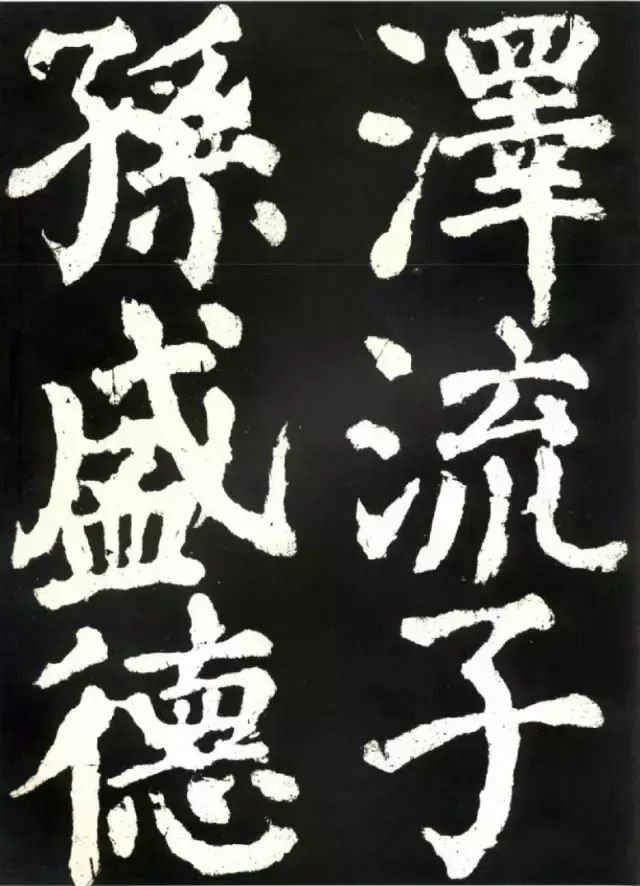 澤流子
孫盛德